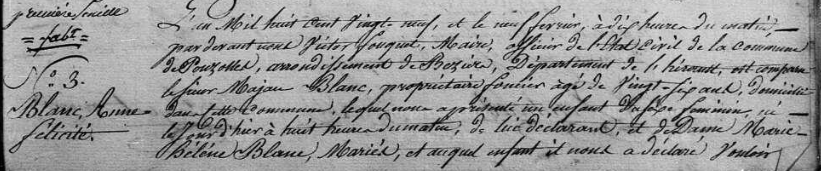 première feuille
fabt
N.º 3.
Blanc, Anne
félicité.
L'an Mil huit Cent Vingt-neuf, et le neuf fevrier, à dix heures du matin,
pardevant nous Victor fouquet, Maire, officier de l'Etat Civil de la commune
de Pouzolles, arrondissement de Beziers, Département de l'hérault, est comparu
le sieur Blanc, propriétaire foncier âgé de Vingt-six ans, domicilié
dans cette Commune, lequel nous a présenté un enfant du sexe feminin, né
le jour d'hier à huit heures du matin, de lui déclarant, et de Dame Marie
hélène Blanc, Mariés, et auquel enfant il nous a déclaré Vouloir